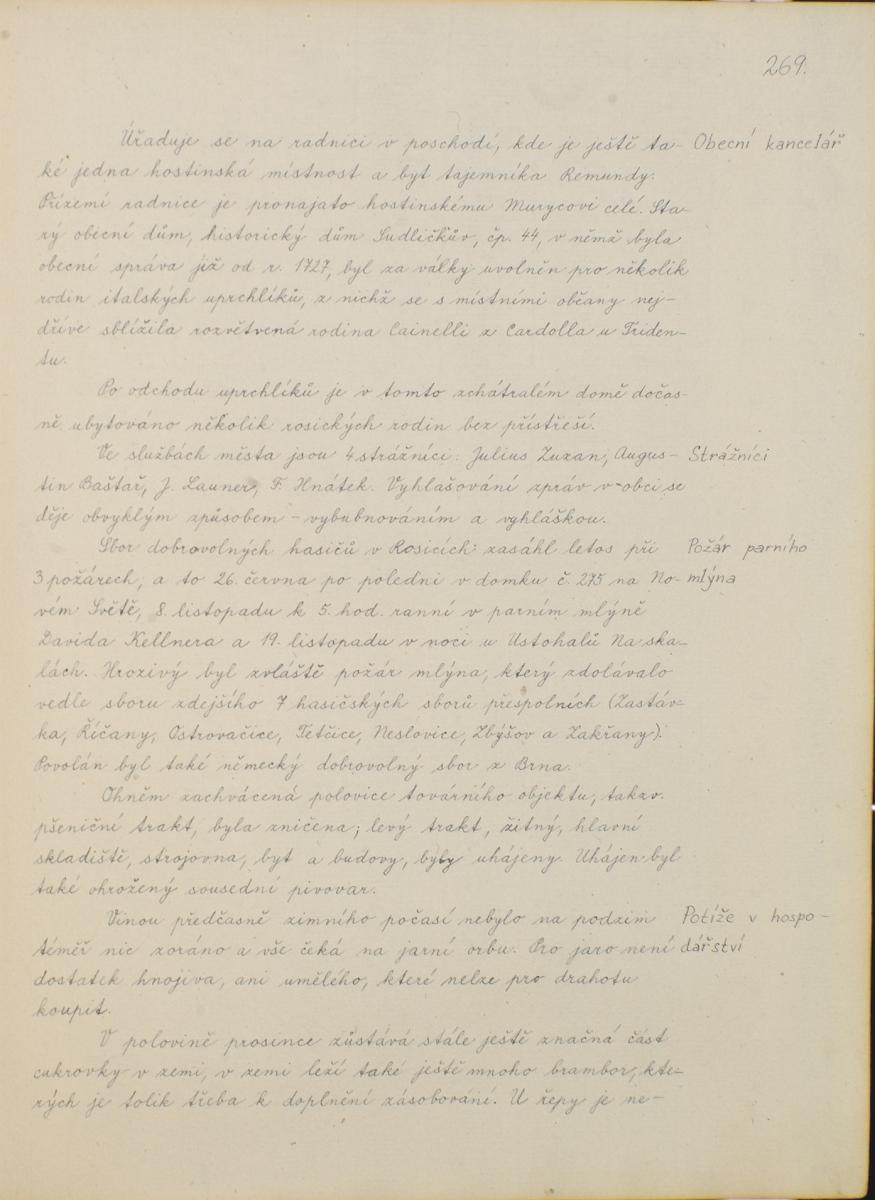 269.
Úřaduje se na radnici v poschodí, kde je ještě ta- Obecní kancelář
ké jedna hostinská místnost a byt tajemníka Remundy.
Přízemí radnice je pronajato hostinskému Murycovi celé. Sta-
rý obecní dům, historický dům Sudličkův, čp. 44, v němž byla
obecní správa již od r. 1727, byl za války uvolněn pro několik
rodin italských uprchlíků, z nichž se s místními občany nej-
dříve sblížila rozvětvená rodina Cainelli z Cardolla u Triden-
tu.
Po odchodu uprchlíků je v tomto zchátralém domě dočas-
ně ubytováno několik rosických rodin bez přístřeší.
Ve službách města jsou 4 strážníci: Julius Zuzan, Augus- Strážníci
tin Baštař, J. Launer, F. Hnátek. Vyhlašování zpráv v obci se
děje obvyklým způsobem - vybubnováním a vyhláškou.
Sbor dobrovolných hasičů v Rosicích zasáhl letos při Požár parního
3 požárech, a to 26. června po poledni v domku č. 275 na No- mlýna
vém Světě, 8. listopadu k 5. hod. ranní v parním mlýně
Davida Kellnera a 19. listopadu v noci u Ustohalů Na ska-
lách. Hrozivý byl zvláště požár mlýna, který zdolávalo
vedle sboru zdejšího 7 hasičských sborů přespolních (Zastáv-
ka, Říčany, Ostrovačice, Tetčice, Neslovice, Zbýšov a Zakřany).
Povolán byl také německý dobrovolný sbor z Brna.
Ohněm zachvácená polovice továrního objektu, takzv.
pšeniční trakt, byla zničena; levý trakt, žitný, hlavní
skladiště, strojovna, byt a budovy, byly uhájeny. Uhájen byl
také ohrožený sousední pivovar.
Vinou předčasně zimního počasí nebylo na podzim Potíže v hospo-
téměř nic zoráno a vše čeká na jarní orbu. Pro jaro není dářství
dostatek hnojiva, ani umělého, které nelze pro drahotu
koupit.
V polovině prosince zůstává stále ještě značná část
cukrovky v zemi, v zemi leží také ještě mnoho brambor, kte-
rých je tolik třeba k doplnění zásobování. U řepy je ne-